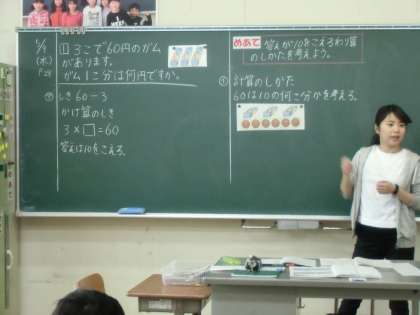 5/9
(水)
P.28
1 3こで60円のガム
があります。
ガム1こ分は何円ですか。
しき60÷3
かけ算のしき
3×□=60
答えは10をこえる。
めあて 答えが10をこえるわり算
のしかたを考えよう。
計算のしかた
60は10の何こ分かを考える。